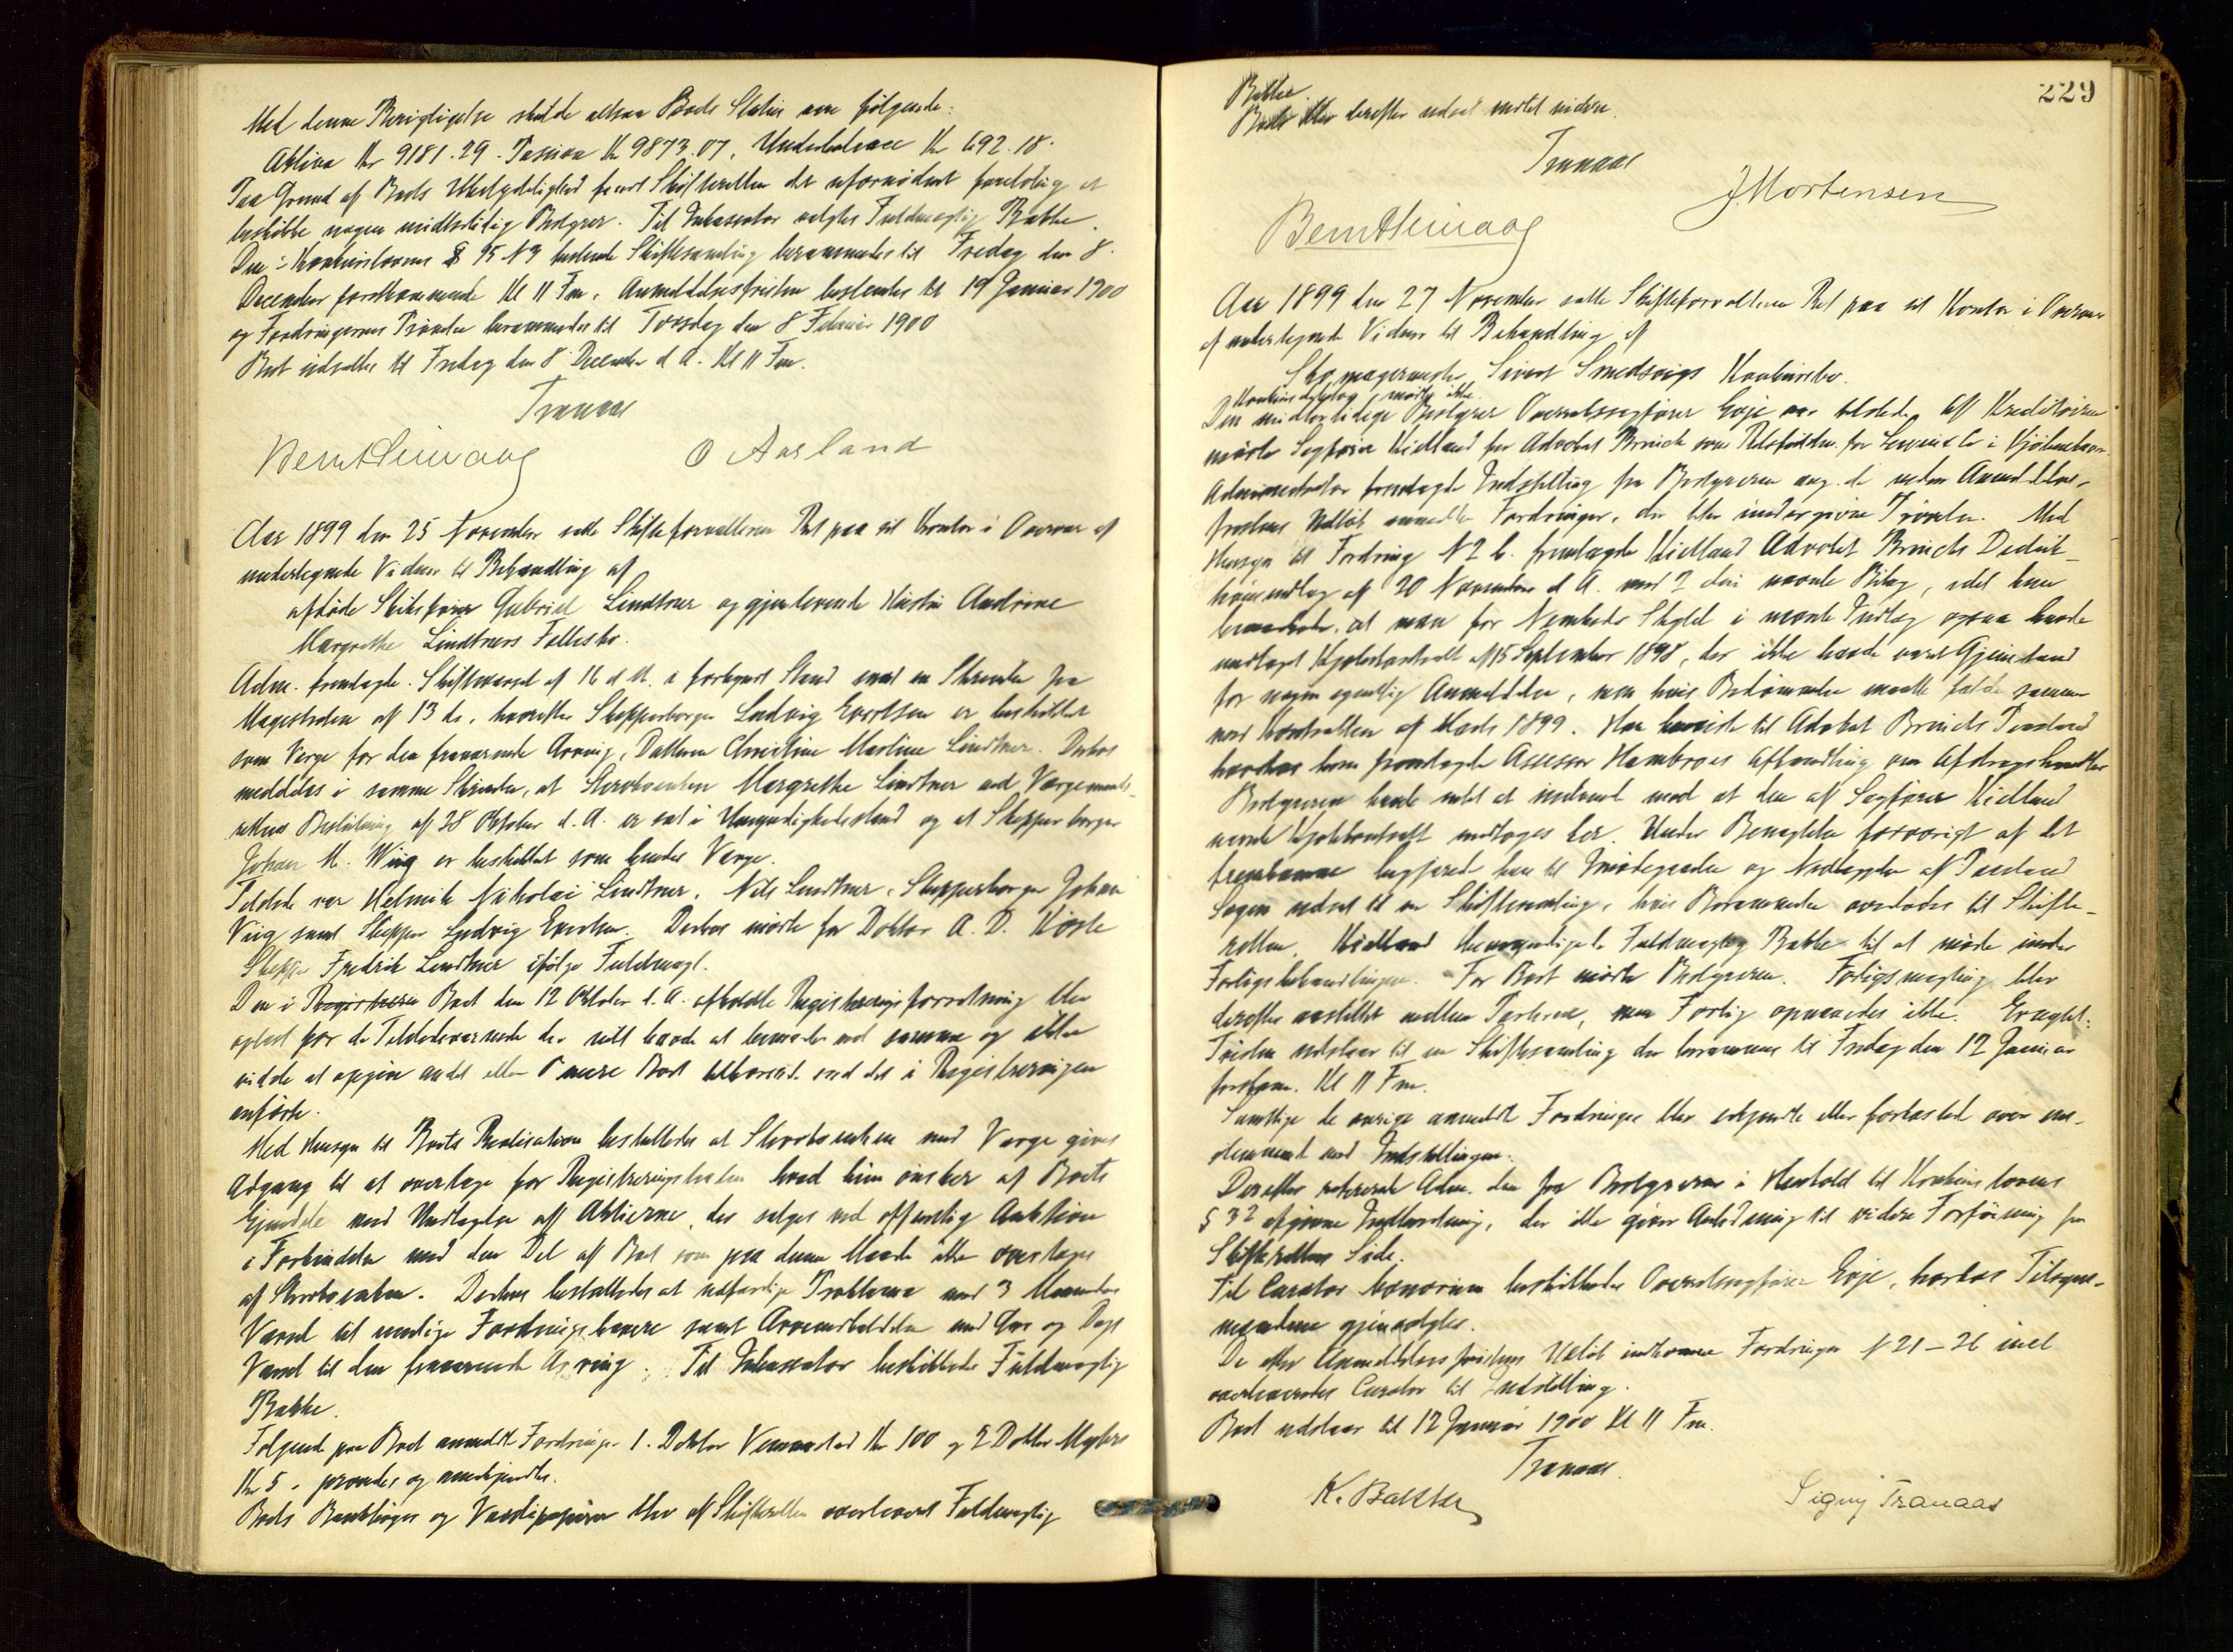 Med denne Berigtigelse skulde altsaa Boets Status være følgende:
Aktiva Kr 9181.29. Passiva Kr 9873.07, Underbalance Kr 692.18.
Paa Grund af Boets Ubetydelighed fandt Skifteretten det ufornødent foreløbig at
beskikke nogen midlertidig Bestyrer. Til Inkassator valgtes Fuldmægtig Bakke.
Den i Konkurslovens § 95 N 3 bestemte Skiftesamling berammedes til Fredag den 8.
December førstkommende Kl 11 Fm. Anmeldelsesfristen bestemtes til 19 Januar 1900
og Fordringernes Prøvelse berammedes til Torsdag den 8 Februar 1900
Boet udsattes til Fredag den 8 December d. A. Kl 11 Fm.
Tranaas
Bernt Heimaag O Aarland
Aar 1899 den 25 November satte Skifteforvalteren Ret paa sit Kontor i Overvær af
undertegnede Vidner til Behandling af
afdøde Skibsfører Gabriel Lindtner og gjenlevende Hustru Andrine
Margrethe Lindtners Fællesbo.
Adm. fremlagde Skiftevarsel af 16 d. M. i forkyndt Stand samt en Skrivelse fra
Magistraten af 13 ds, hvorefter Skipperborger Ludvig Evertsen er beskikket
som Verge for den fraværende Arving, Datteren Christine Martine Lindtner. Derhos
meddeles i samme Skrivelse, at Stervboenken Margrethe Lindtner ved Vergemaals-
rettens Beslutning af 28 Oktober d. A. er sat i Umyndighedsstand og at Skipperborger
Johan M. Wiig er beskikket som hendes Verge.
Tilstede var Helmik Nikolai Lindtner, Nils Lindtner, Skipperborger Johan
Viig samt Skipper Ludvig Evertsen. Derhos mødte for Doktor A. D. Kørte
Skipper Fredrik Lindtner ifølge Fuldmagt.
Den i Registreren Boet den 12 Oktober d. A. afholdte Registreringsforretning blev
oplæst for de Tilstedeværende der intet havde at bemærke ved samme og ikke
vidste at opgive andet eller mere Boet tilhørende end det i Registreringen
anførte.
Med Hensyn til Boets Realisation besluttedes at Stervboenken med Verge gives
Adgang til at overtage for Registreringstaksten hvad hun ønsker af Boets
Eiendele med Undtagelse af Aktierne, der sælges ved offentlig Auktion
i Forbindelse med den Del af Boet som paa denne Maade ikke overtages
af Stervboenken. Derhos besluttedes at udfærdige Proklama med 3 Maaneders
Varsel til mulige Fordringshavere samt Arveindkaldelse med Aar og Dags
Varsel til den fraværende Arving. Til Inkassator beskikkedes Fuldmægtig
Bakke.
Følgende paa Boet anmeldte Fordringer 1. Doktor Vennestad Kr 100 og 2 Doktor Myhre
Kr 5. prøvedes og anerkjendtes.
Boets Bankbøger og Værdipapirer blev af Skifteretten overleveret Fuldmægtig
229
Bakke.
Boet blev derefter udsat indtil videre.
Tranaas
Bernt Heimaag J. Mortensen
Aar 1899 den 27 November satte Skifteforvalteren Ret paa sit Kontor i Overvær
af undertegnede Vidner til Behandling af
Skomagermester Sivert Smedsvigs Konkursbo.
Konkursdebitor mødte ikke.
Den midlertidige Bestyrer Overretssagfører Evje var tilstede. Af Kreditorerne
mødte Sagfører Kielland for Advokat Brinch som Retsfuldm. for & Co i Kjøbenhavn
Administrator fremlagde Indstilling fra Bestyreren ang. de inden Anmeldelses-
fristens Udløb anmeldte Fordringer, der blev undergivne Prøvelse. Med
Hensyn til Fordring N 2 b. fremlagde Kielland Advokat Brinchs Deduk-
tionsindlæg af 20 November d. A. med 2 deri nævnte Bilag, idet han
bemærkede, at man for Nemheds Skyld i nævnte Indlæg ogsaa havde
medtaget Kjøbekontrakt af 15 September 1898, der ikke havde været Gjenstand
for nogen egentlig Anmeldelse, men hvis Bedømmelse maatte falde sammen
med Kontrakten af Marts 1899. Han henviste til Advokat Brinchs Paastand
hvorhos han fremlagde Assessor Hambros Afhandling om Afdragshandler
Bestyreren havde intet at indvende mod at den af Sagfører Kielland
nævnte Kjøbkontrakt medtoges her. Under Benægtelse forøvrigt af det
fremkomne begjærede han til Imødegaaelse og Nedlæggelse af Paastand
Sagen udsat til en Skiftesamling, hvis Berammelse overlodes til Skifte-
retten. Kielland bemyndigede Fuldmægtig Bakke til at møde under
Forligsbehandlingen. For Boet mødte Bestyreren. Forligsmægling blev
derefter anstillet mellem Parterne, men Forlig opnaaedes ikke. Evagtet.
Tvisten udstaar til en Skiftesamling der berammes til Fredag den 12 Januar
førstkom. Kl 11 Fm.
Samtlige de øvrige anmeldte Fordringer blev godkjendte eller forkastede over ens-
stemmende med Indstillingen.
Derefter refererede Adm. den fra Bestyreren i Henhold til Konkurslovens
§ 32 afgivne Indberetning, der ikke giver Anledning til videre Forføining fra
Skifterettens Side.
Til Curator bonorum beskikkedes Overretssagfører Evje, hvorhos Tilsyns-
mændene gjenvalgtes.
De efter Anmeldelsesfristens Udløb indkomne Fordringer N 21-26 incl
overleveredes Curator til Indstilling.
Boet udstaar til 12 Januar 1900 Kl 11 Fm.
Tranaas.
K. Bakke Signy Tranaas